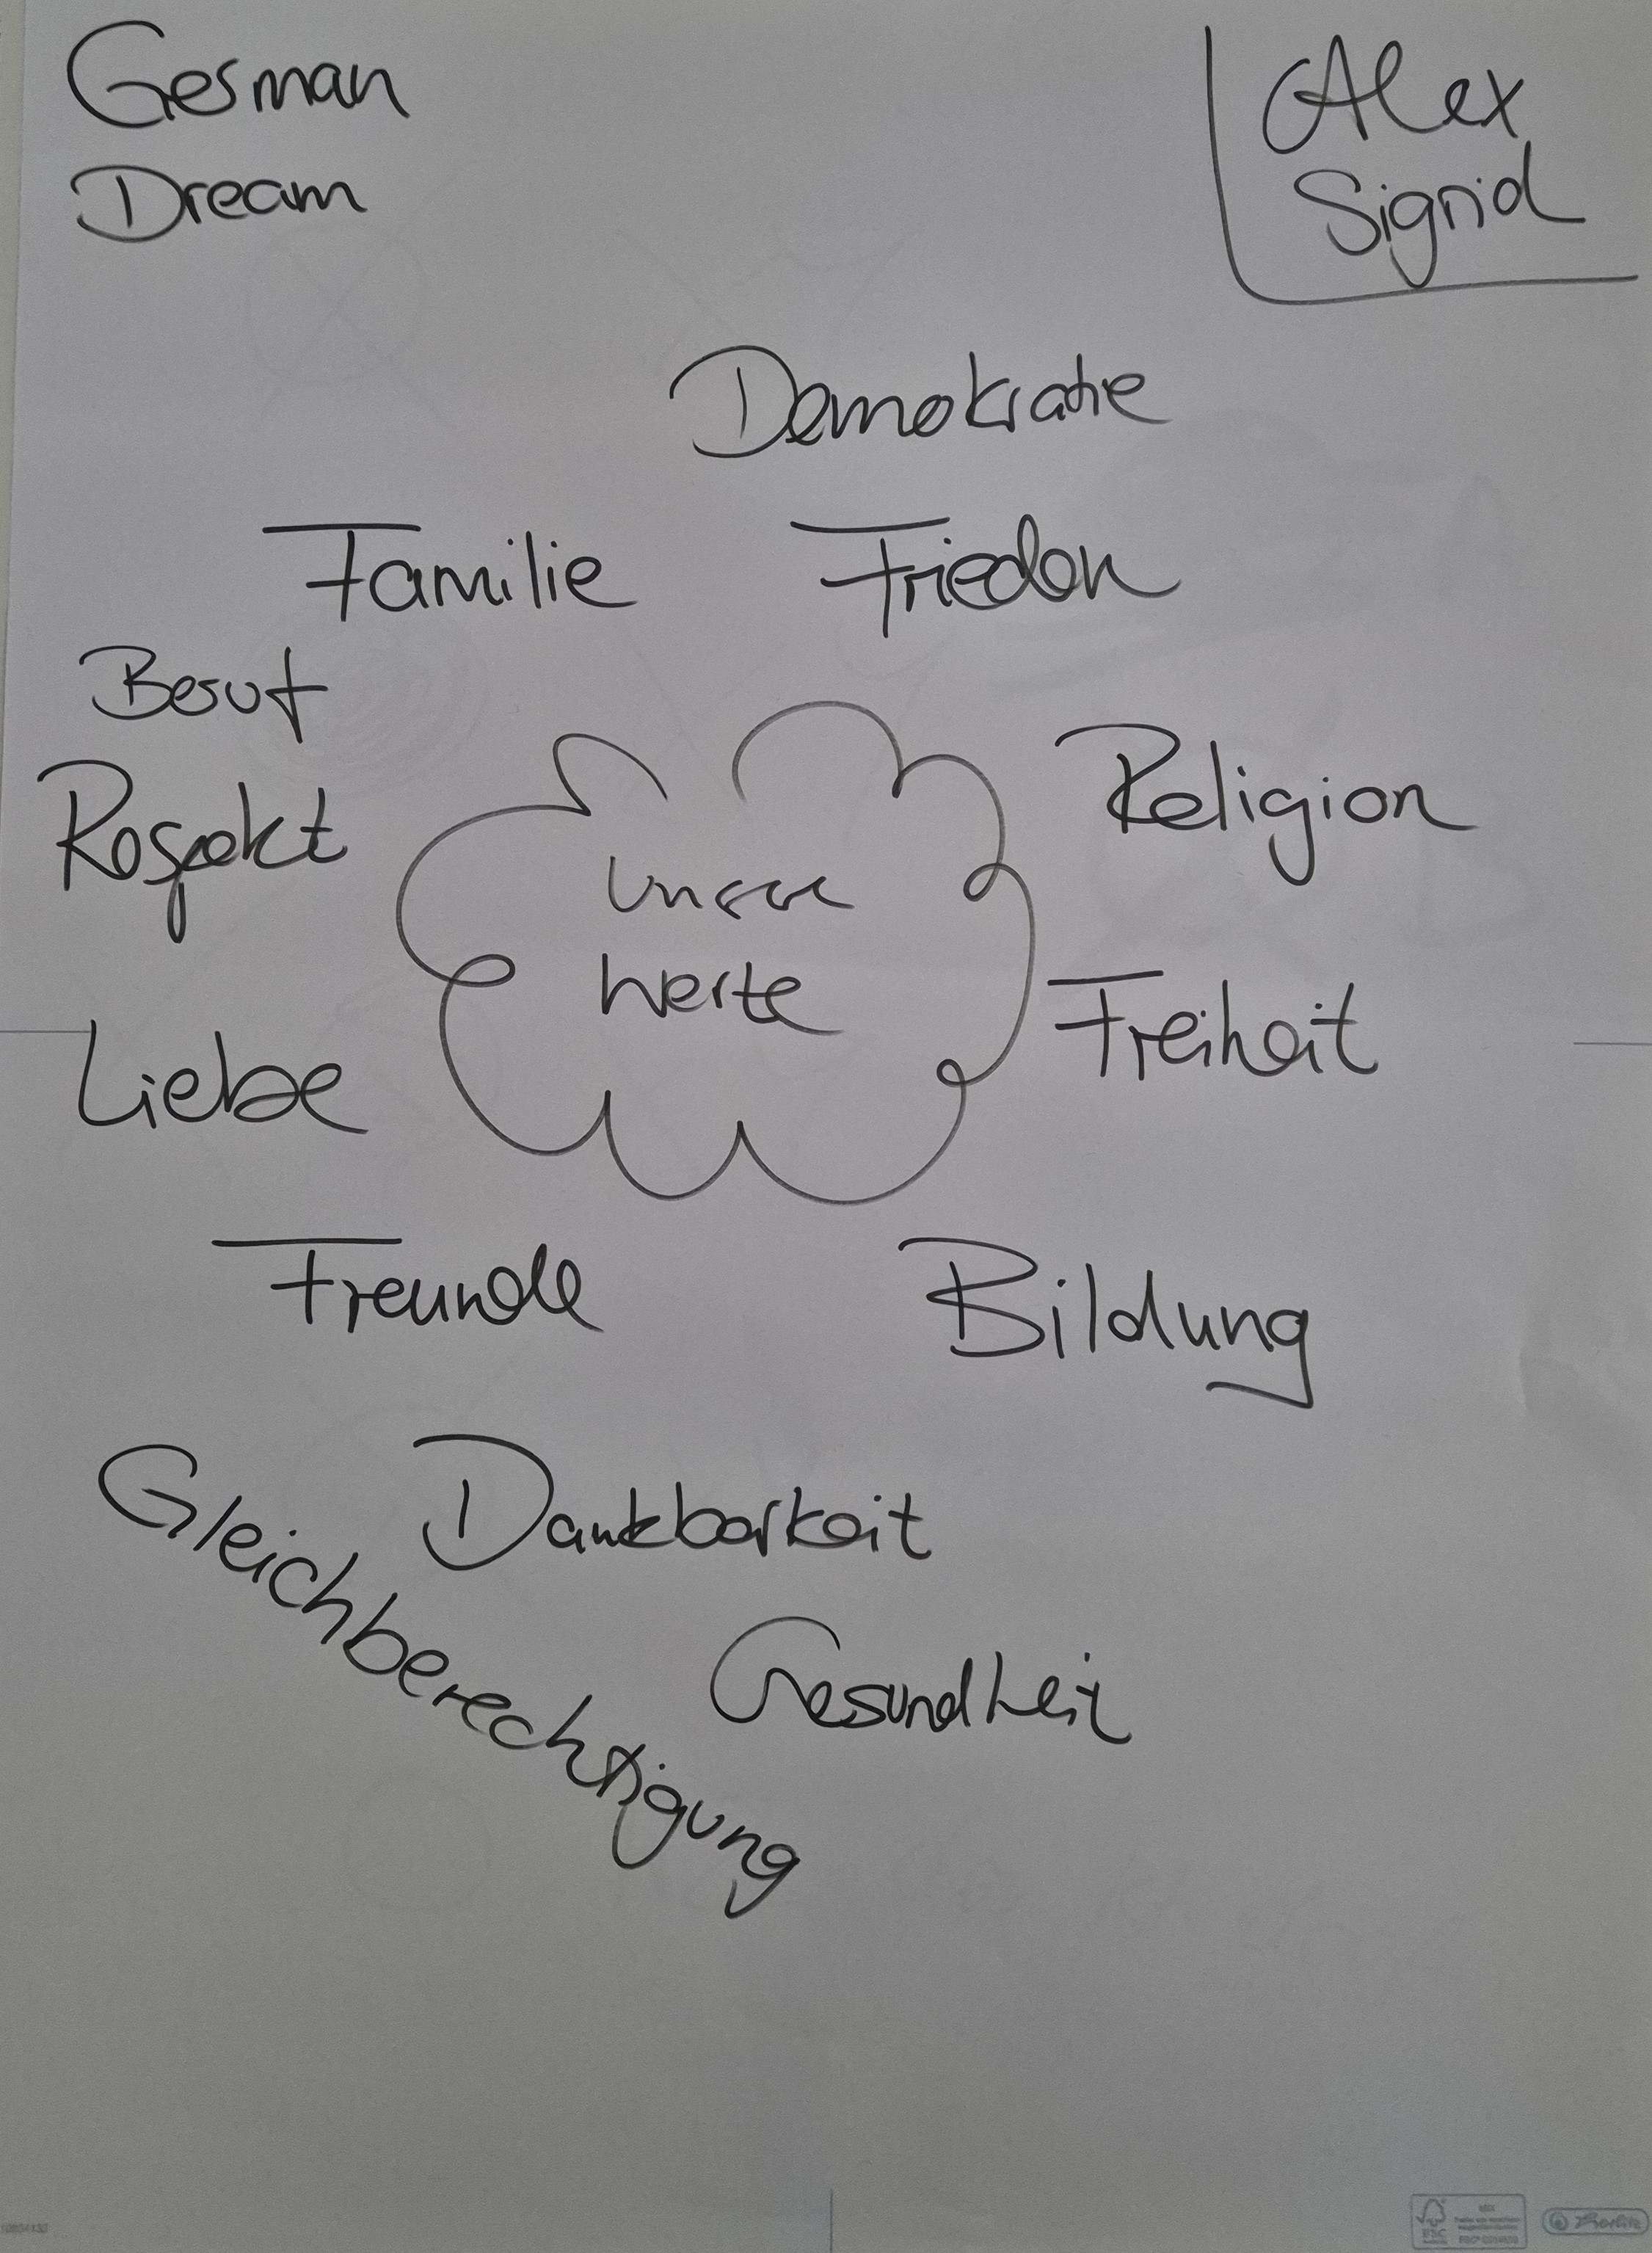 German
Dream
Alex
Sigrid
Demokratie
Familie
Frieden
Beruf
Respekt
Religion
Unsere
Werte
Freiheit
Liebe
Freunde
Bildung
Dankbarkeit
Gleichberechtigung
Gesundheit
FSC